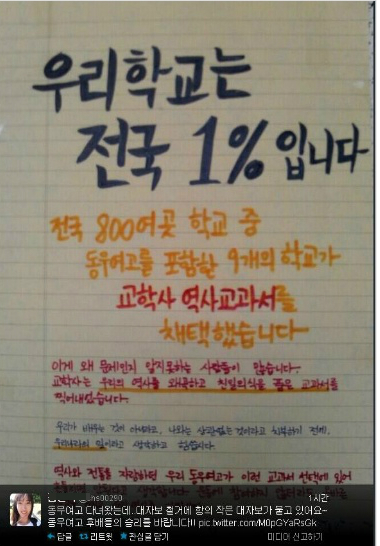 우리학교는
전국 1% 입니다
전국 800여곳 학교 중
동우여고를 포함한 9개의 학교가
교학사 역사교과서를
채택했습니다
이게 왜 문제인지 알지못하는 사람들이 많습니다.
교학사는 우리의 역사를 왜곡하고 친일의식을 품은 교과서를
우리가 배우는 것이 아니라고, 나와는 상관없는 것이라고 치부하기 전에,
우리나라의 일이라고 생각하고
역사와 전통을 자랑하던 우리 동우여고가 이런 교과서 선택에 있어
1시간
동우여고 다녀왔는데..대자보 철거에 항의 작은 대자보가 붙고 있어요~
동우여고 후배들의 승리를 바랍니다!! pic.twitter.com/M0pGYaRsGk
답글 리트윗 관심글 담기 미디어 신고하기